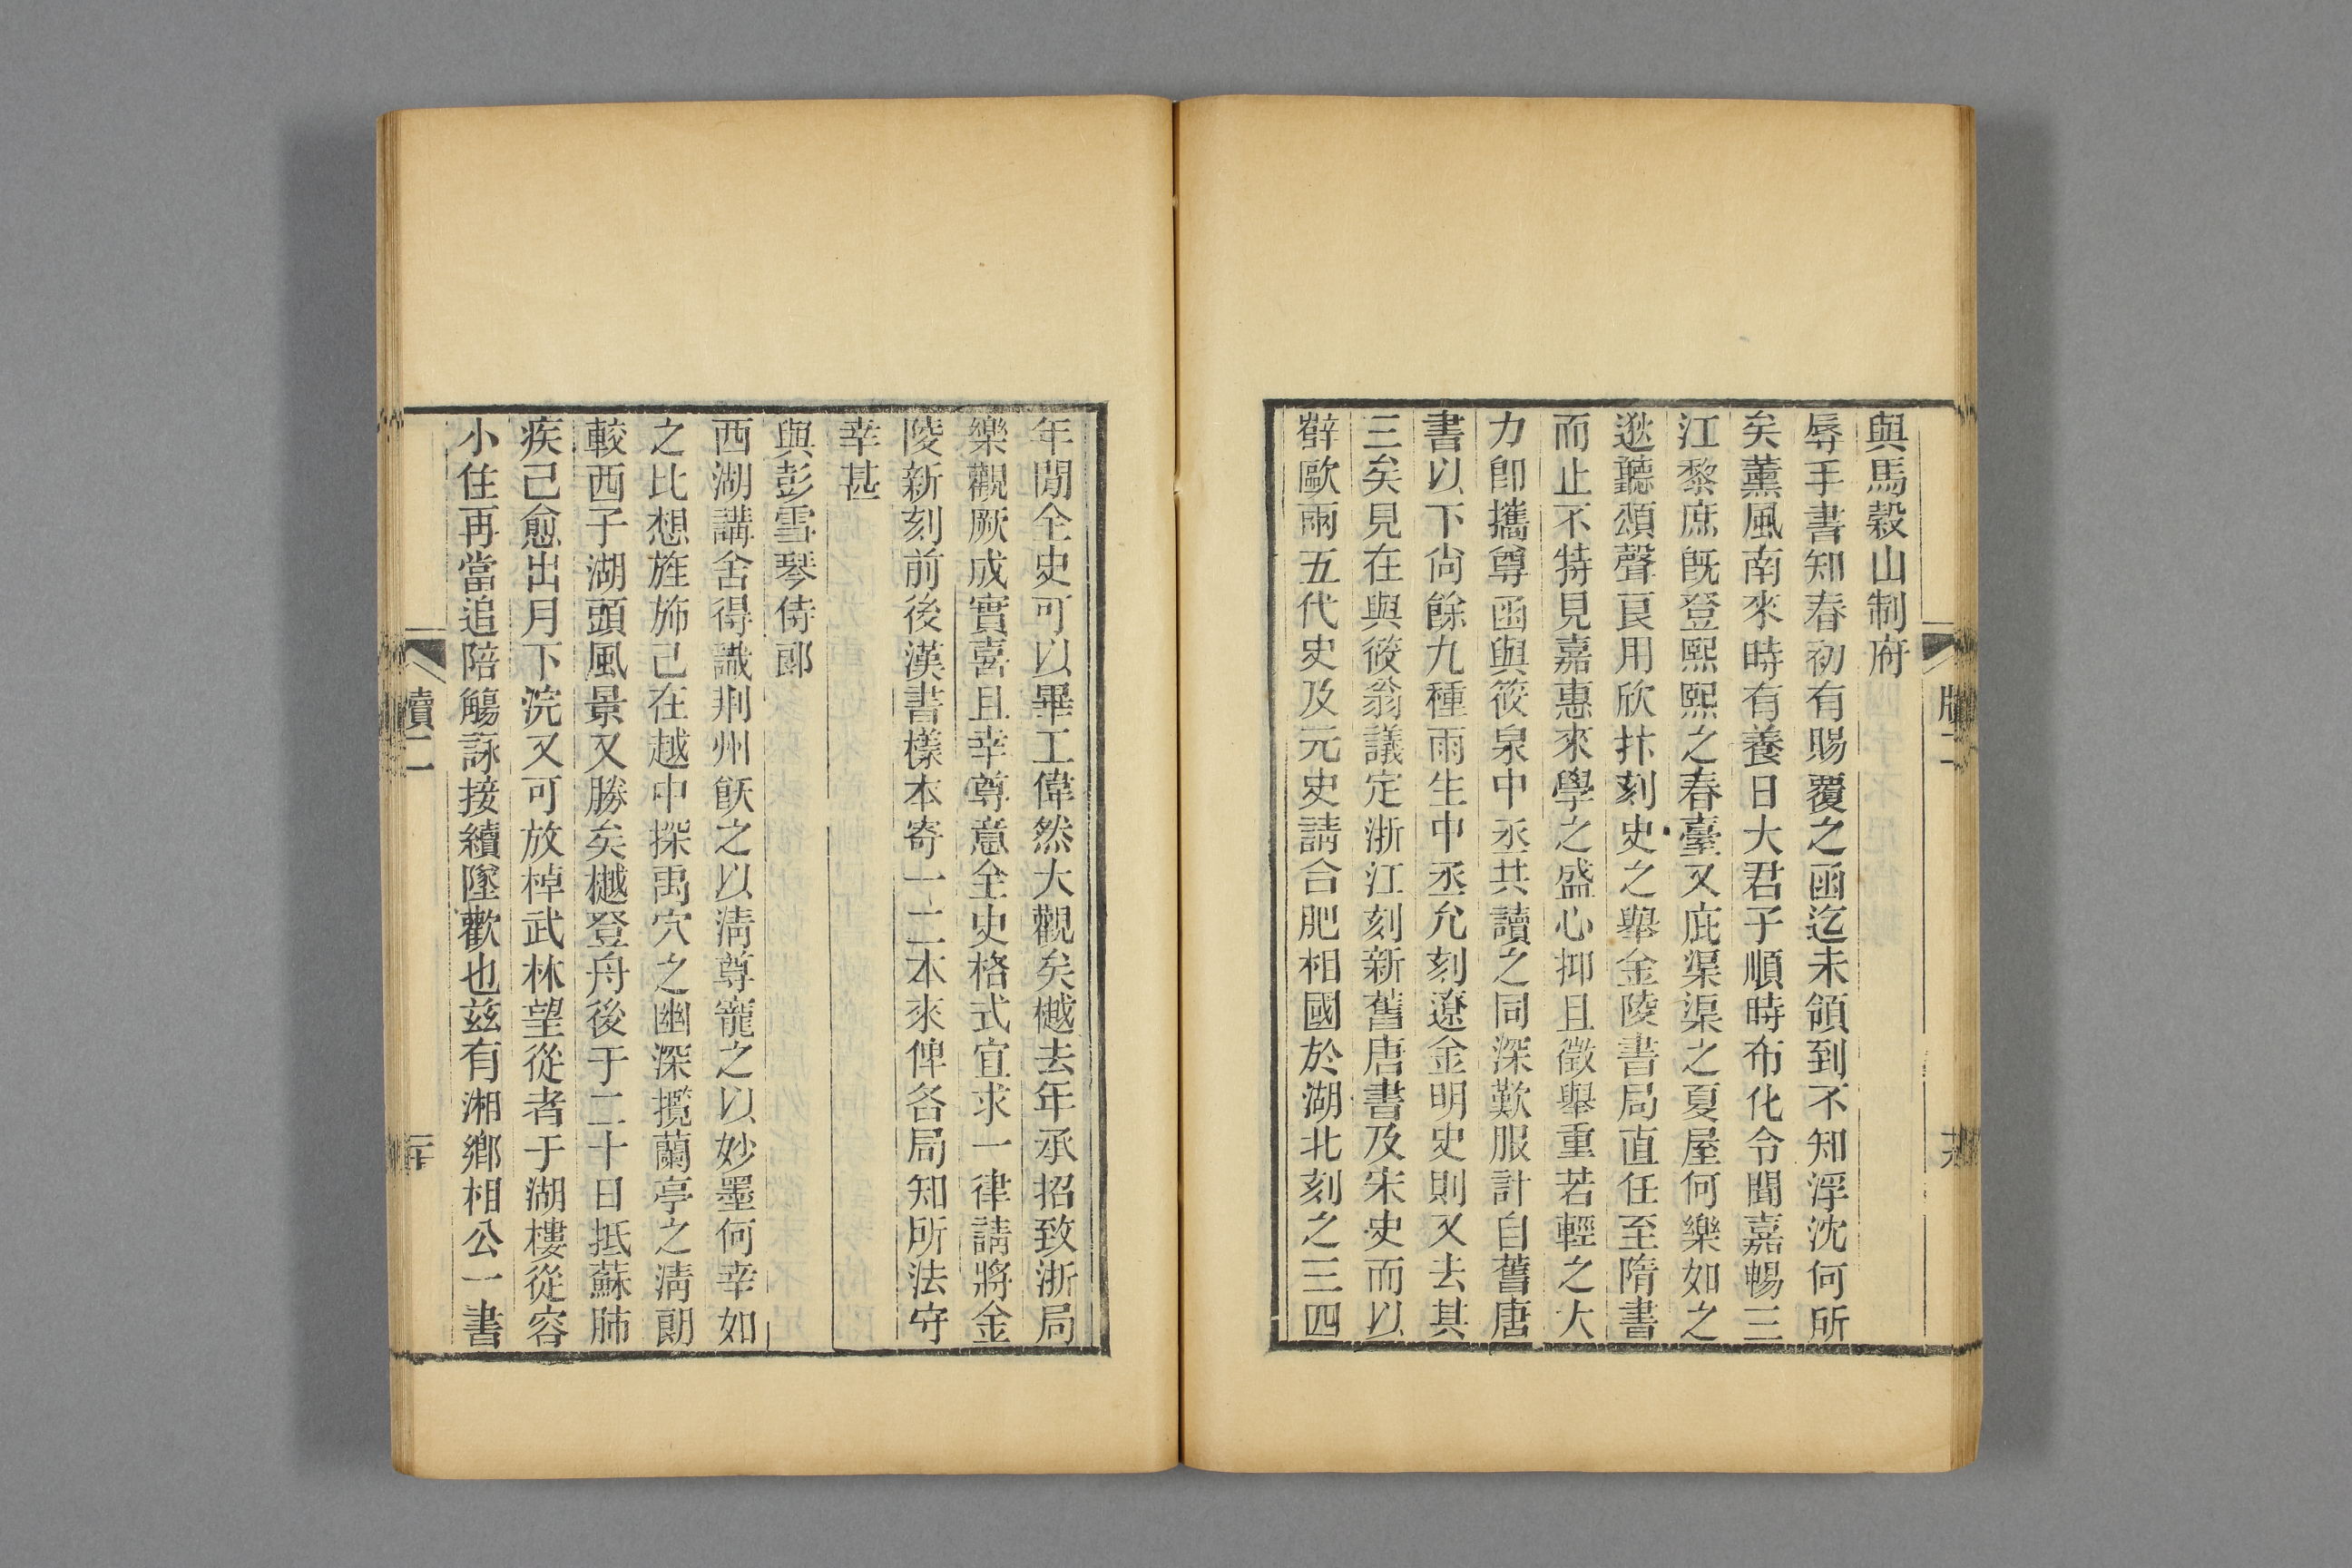 與馬穀山制府
辱手書知春初有賜覆之函迄未領到不知浮沈何所
矣薰風南來時有養日大君子順時布化令聞嘉暢三
江黎庶旣登熙熙之春臺又庇渠渠之夏屋何樂如之
逖聽頌聲良用欣抃刻史之舉金陵書局直任至隋書
而止不特見嘉惠來學之盛心抑且徵舉重若輕之大
力卽攜尊函與筱泉中丞共讀之同深歎服計自舊唐
書以下尙餘九種雨生中丞允刻遼金明史則又去其
三矣見在與筱翁議定浙江刻新舊唐書及宋史而以
辥歐兩五代史及元史請合肥相國於湖北刻之三四
年閒全史可以畢工偉然大觀矣樾去年承招致浙局
樂觀厥成實喜且幸尊意全史格式宜求一律請將金
陵新刻前後漢書樣本寄一二本來俾各局知所法守
幸甚
與彭雪琴侍郞
西湖講舍得識荆州飫之以淸尊寵之以妙墨何幸如
之比想旌斾已在越中探禹穴之幽深攬蘭亭之淸朗
較西子湖頭風景又勝矣樾登舟後于二十日抵蘇肺
疾己愈出月下浣又可放棹武林望從者于湖樓從容
小住再當追陪觴詠接續墜歡也兹有湘鄉相公一書
牘二